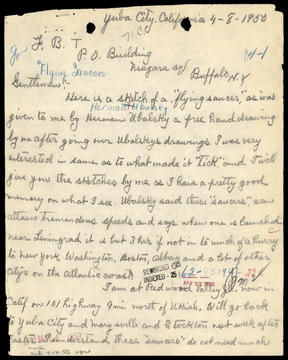 Yuba City, California 4-8-1950
F. B. I
P.O. Building
Niagara sq
Buffalo N.Y
"Flying Saucers"
Gentlemen:-
Here is a sketch of a "flying saucer," as was
Herman Ubalsky
given to me by Herman Ubalsky a free hand drawing
by me after going over Ubalskys drawings I was very
interested in same as to what made it "tick" and I will
give you the sketches by me as I have a pretty good
memory on what I see. Ubalsky said these "saucers" saw
attains tremendous speeds and says when one is launched
near Leningrad it is but 3 hrs if not in to much of a hurry
to New York, Washington, Boston, Albany and a lot of other
citys on the Atlantic coast.
RECORDED
INDEXED - 25
62-83
APR 1950
I am at Redwood Valley now in
Calif on 101 highway 9 mi north of Ukiah. Will go back
to Yuba City and Marysville and Stockton next week after
Easter. I understand these "saucers" do not need much